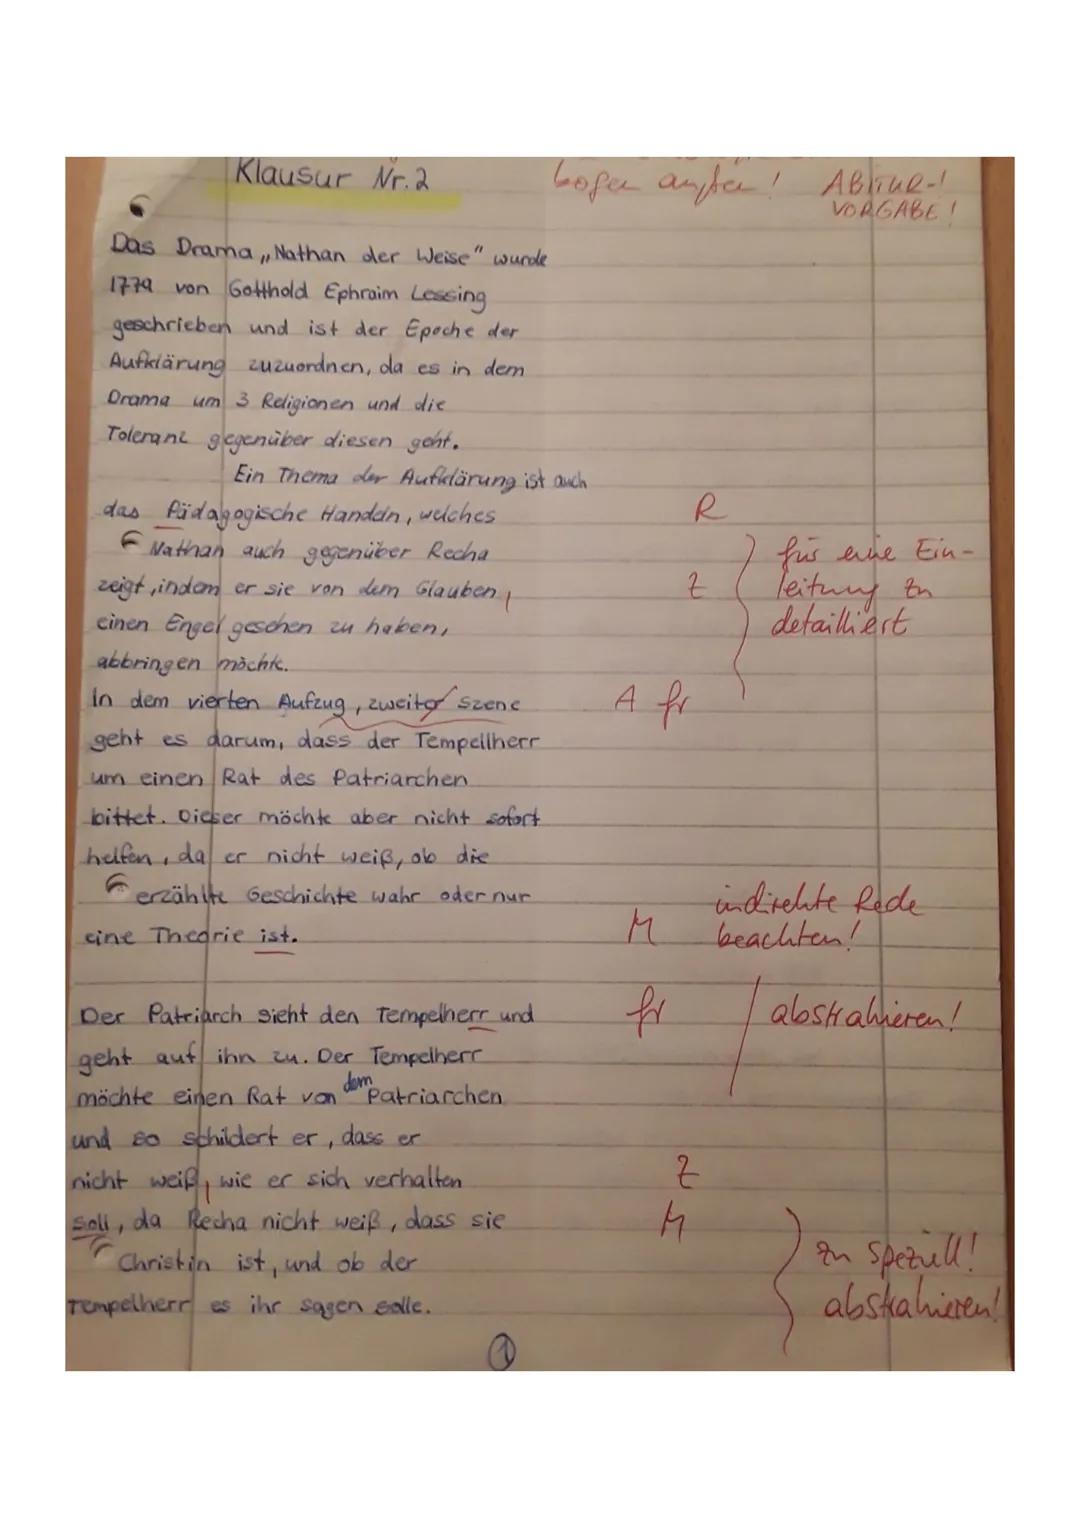 Klausur Nr. 2
ABITUR-!
VORGABE!
Das Drama „Nathan der Weise" wurde
1779 von Gotthold Ephraim Lessing
geschrieben und ist der Epoche der
Aufklärung zuzuordnen, da es in dem
Drama um 3 Religionen und die
Toleranz gegenüber diesen geht.
Ein Thema der Aufklärung ist auch
das Pädagogische Handeln, welches R
Nathan auch gegenüber Recha für eine Ein-
zeigt, indem er sie von dem Glauben, Z leitung zu
einen Engel gesehen zu haben, detailliert
abbringen möchte.
In dem vierten Aufzug, zweiter Szene A fr
geht es darum, dass der Tempellherr
um einen Rat des Patriarchen
bittet. Dieser möchte aber nicht sofort
helfen, da er nicht weiß, ob die
erzählte Geschichte wahr oder nur indirekte Rede
eine Theorie ist. M beachten!
Der Patriarch sieht den Tempelherr und fr abstrahieren!
geht auf ihn zu. Der Tempelherr
möchte einen Rat von dem Patriarchen
und so schildert er, dass er
nicht weiß, wie er sich verhalten Z
soll, da Recha nicht weiß, dass sie M
Christin ist, und ob der zu speziell!
Tempelherr es ihr sagen solle. abstrahieren!
1